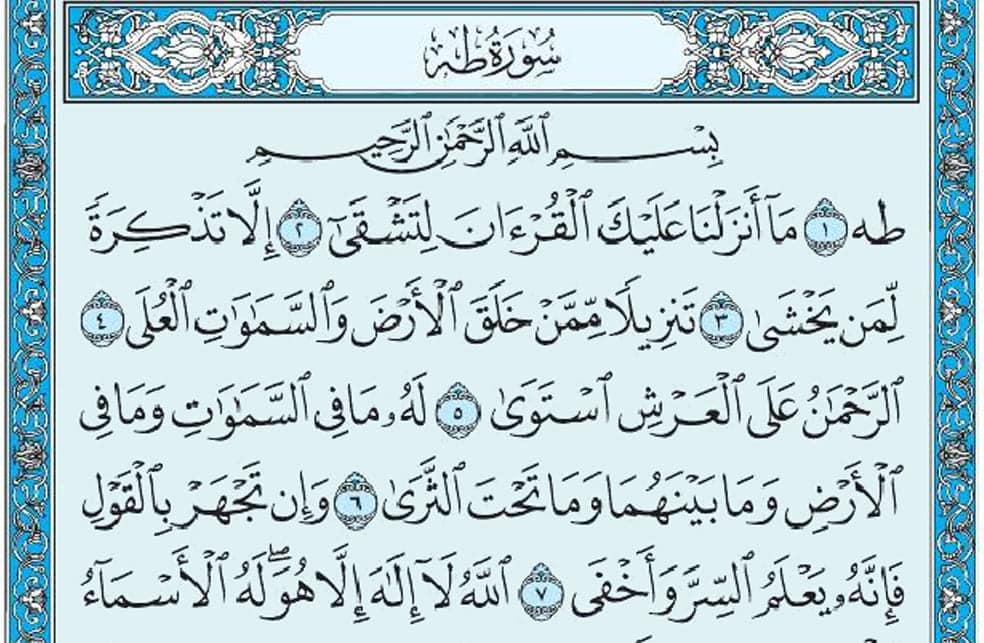 سُورَةُ طه
بِسْمِ ٱللَّهِ ٱلرَّحْمَٰنِ ٱلرَّحِيمِ
طه ١ مَآ أَنزَلْنَا عَلَيْكَ ٱلْقُرْءَانَ لِتَشْقَىٰٓ ٢ إِلَّا تَذْكِرَةً
لِّمَن يَخْشَىٰ ٣ تَنزِيلًا مِّمَّنْ خَلَقَ ٱلْأَرْضَ وَٱلسَّمَٰوَٰتِ ٱلْعُلَى ٤
ٱلرَّحْمَٰنُ عَلَى ٱلْعَرْشِ ٱسْتَوَىٰ ٥ لَهُۥ مَا فِى ٱلسَّمَٰوَٰتِ وَمَا فِى
ٱلْأَرْضِ وَمَا بَيْنَهُمَا وَمَا تَحْتَ ٱلثَّرَىٰ ٦ وَإِن تَجْهَرْ بِٱلْقَوْلِ
فَإِنَّهُۥ يَعْلَمُ ٱلسِّرَّ وَأَخْفَى ٧ ٱللَّهُ لَآ إِلَٰهَ إِلَّا هُوَ ۖ لَهُ ٱلْأَسْمَآءُ